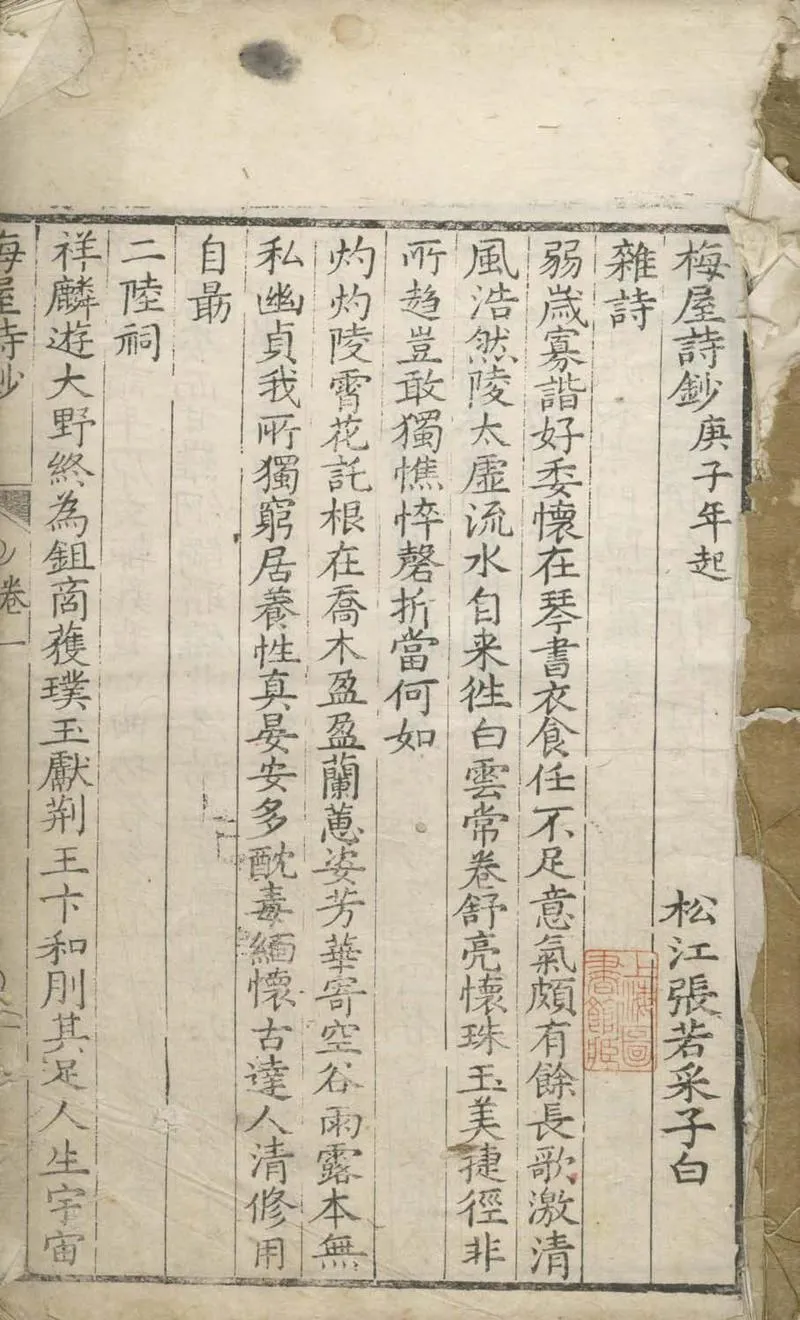 梅屋詩鈔 庚子年起 松江張若采子白
雜詩
弱嵗寡諧好委懷在琴書衣食任不足意氣頗有餘長歌激清
風浩然陵太虛流水自来徃白雲常卷舒亮懷珠玉美捷徑非
所趋豈敢獨憔悴磬折當何如
灼灼陵霄花託根在喬木盈盈蘭蕙姿芳華寄空谷雨露本無
私幽貞我所獨窮居養性真晏安多酖毒緬懷古達人清修用
自勗
二陸祠
祥麟遊大野終為鉏商獲璞玉獻荆王卞和刖其足人生宇宙
梅屋詩鈔 卷一
上海圖書館藏